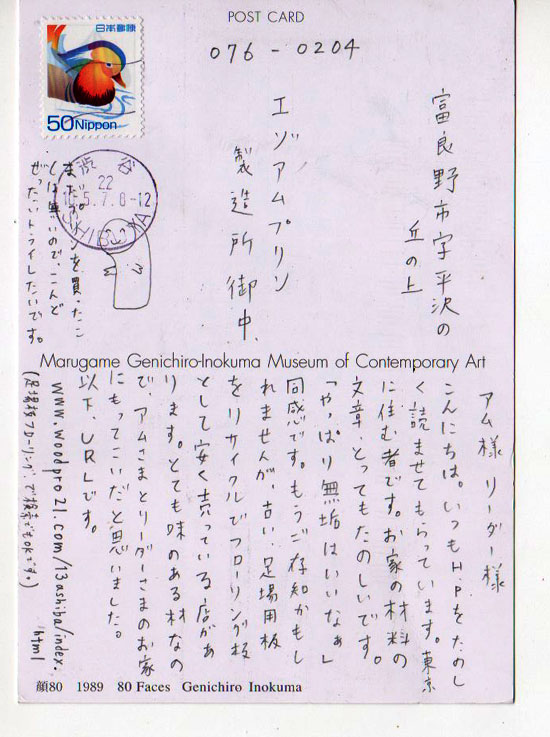 POST CARD
日本郵便
50 Nippon
076-0204
渋谷
22
.5.7.8-12
SHIBUYA
富良野市字平沢の
丘の上
エゾアムプリン
製造所御中
まだプリンを買ったこ
とは無いので、こんど
ぜったいトライしたいです。
Marugame Genichiro-Inokuma Museum of Contemporary Art
アム様 リーダー様
こんにちは。いつもH.Pをたのし
く読ませてもらっています。東京
に住む者です。お家の材料の
文章、とってもたのしいです。
「やっぱり無垢はいいなぁ」
同感です。もうご存知かもし
れませんが、古い足場用板
をリサイクルでフローリング板
として安く売っている店があ
ります。とても味のある材なの
で、アムさまとリーダーさまのお家
にもってこいだと思いました。
以下、URLです。
www.woodpro21.com/13ashiba/index.
html
(足場板フローリング、で検索でもOKです。)
顔80 1989 80 Faces Genichiro Inokuma